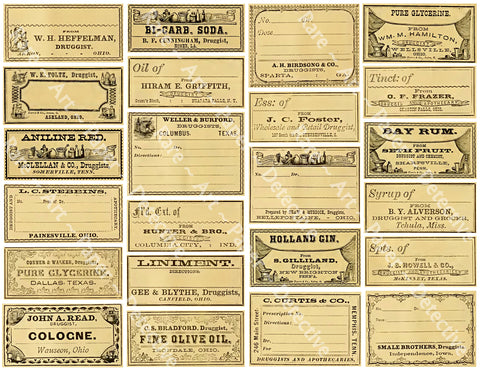 FROM
W. H. HEFFELMAN,
DRUGGIST.
AKRON, OHIO.
W. K. FOLTZ, Druggist,
ASHLAND, OHIO.
ANILINE RED,
McCLELLAN & CO., Druggists,
SOMERVILLE, TENN.
L. C. STEBBINS,
No. Pres. of Dr.
PAINESVILLE, OHIO.
PURE GLYCERINE,
DALLAS, TEXAS.
JOHN A. READ,
DRUGGIST,
COLOGNE.
Wauseon, Ohio
BI-CARB. SODA.
B. F. CUNNINGHAM, Druggist,
Oil of
FROM
HIRAM E. GRIFFITH,
NIAGARA FALLS, N. Y.
WELLER & BURFORD,
DRUGGISTS,
COLUMBUS, TEXAS.
No. Dr.
Directions:
Fl'd. Ext. of
FROM
HUNTER & BRO.,
COLUMBIA CITY, IND.
LINIMENT.
DIRECTIONS:
GEE & BLYTHE, Druggists,
CANFIELD, OHIO.
C. S. BRADFORD, Druggist,
FINE OLIVE OIL,
IRONDALE, OHIO.
No.
Dose
A. H. BIRDSONG & CO.,
DRUGGISTS,
SPARTA, GA.
Ess: of
FROM
J. C. Foster,
Wholesale and Retail Druggist,
No.
Directions:
BELLEFONTAINE, OHIO.
HOLLAND GIN.
From
S. GILLILAND,
Druggist,
NEW BRIGHTON
PENN'A.
C. CURTIS & CO.,
246 Main Street
MEMPHIS, TENN.
Prescription No.
Directions:
Dr.
DRUGGISTS AND APOTHECARIES.
PURE GLYCERINE.
FROM
WM. M. HAMILTON,
WELLSVILLE,
OHIO.
Tinct: of
From
O. F. FRAZER,
BAY RUM.
FROM
SETH FRUIT,
DRUGGIST AND CHEMIST,
SHARPSVILLE,
PENN.
Syrup of
FROM
B. Y. ALVERSON,
DRUGGIST AND GROCER,
Tchula, Miss.
Spts. of
From
J. S. HOWELL & CO.,
McKINNEY, TEXAS.
SMALL BROTHERS, Druggists,
Independence, Iowa.